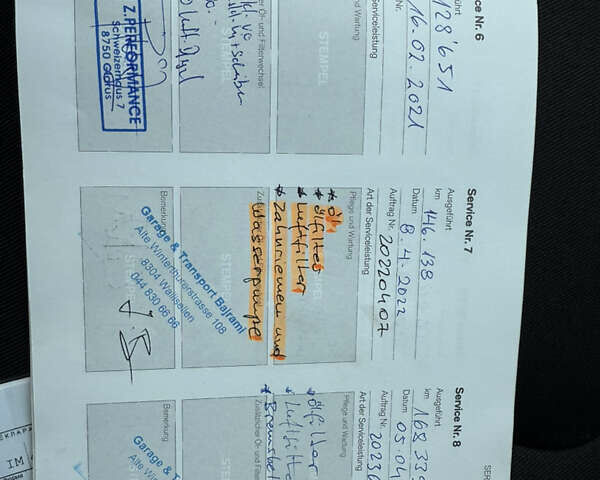 ce Nr. 6
führt
128'651
16.02.2021
Nr.
Art der Serviceleistung
und Wartung
STEMPEL
Öl- und Filterwechsel
Z.PERFORMANCE
Schweizerhaus 7
8750 Glarus
Service Nr. 7
Ausgeführt
km 146.138
Datum 8.4.2022
Auftrag Nr. 20220407
Art der Serviceleistung
Pflege und Wartung
* Öl
* ölfilter
* Luftfilter
* Zahnriemen und
Wasserpumpe
STEMPEL
Bemerkung
Garage & Transport Bajrami
Alte Winterthurerstrasse 108
8304 Wallisellen
044 830 66 96
SER
Service Nr. 8
Ausgeführt
km 168.339
Datum 05.04
Auftrag Nr. 20230
Art der Serviceleistung
Pflege und Wartung
* ölfilter
* Luftfilte
Zusätzlicher Öl- und Filte
STEM
Bemerkung
Garage & T
Alte Win
830
IM